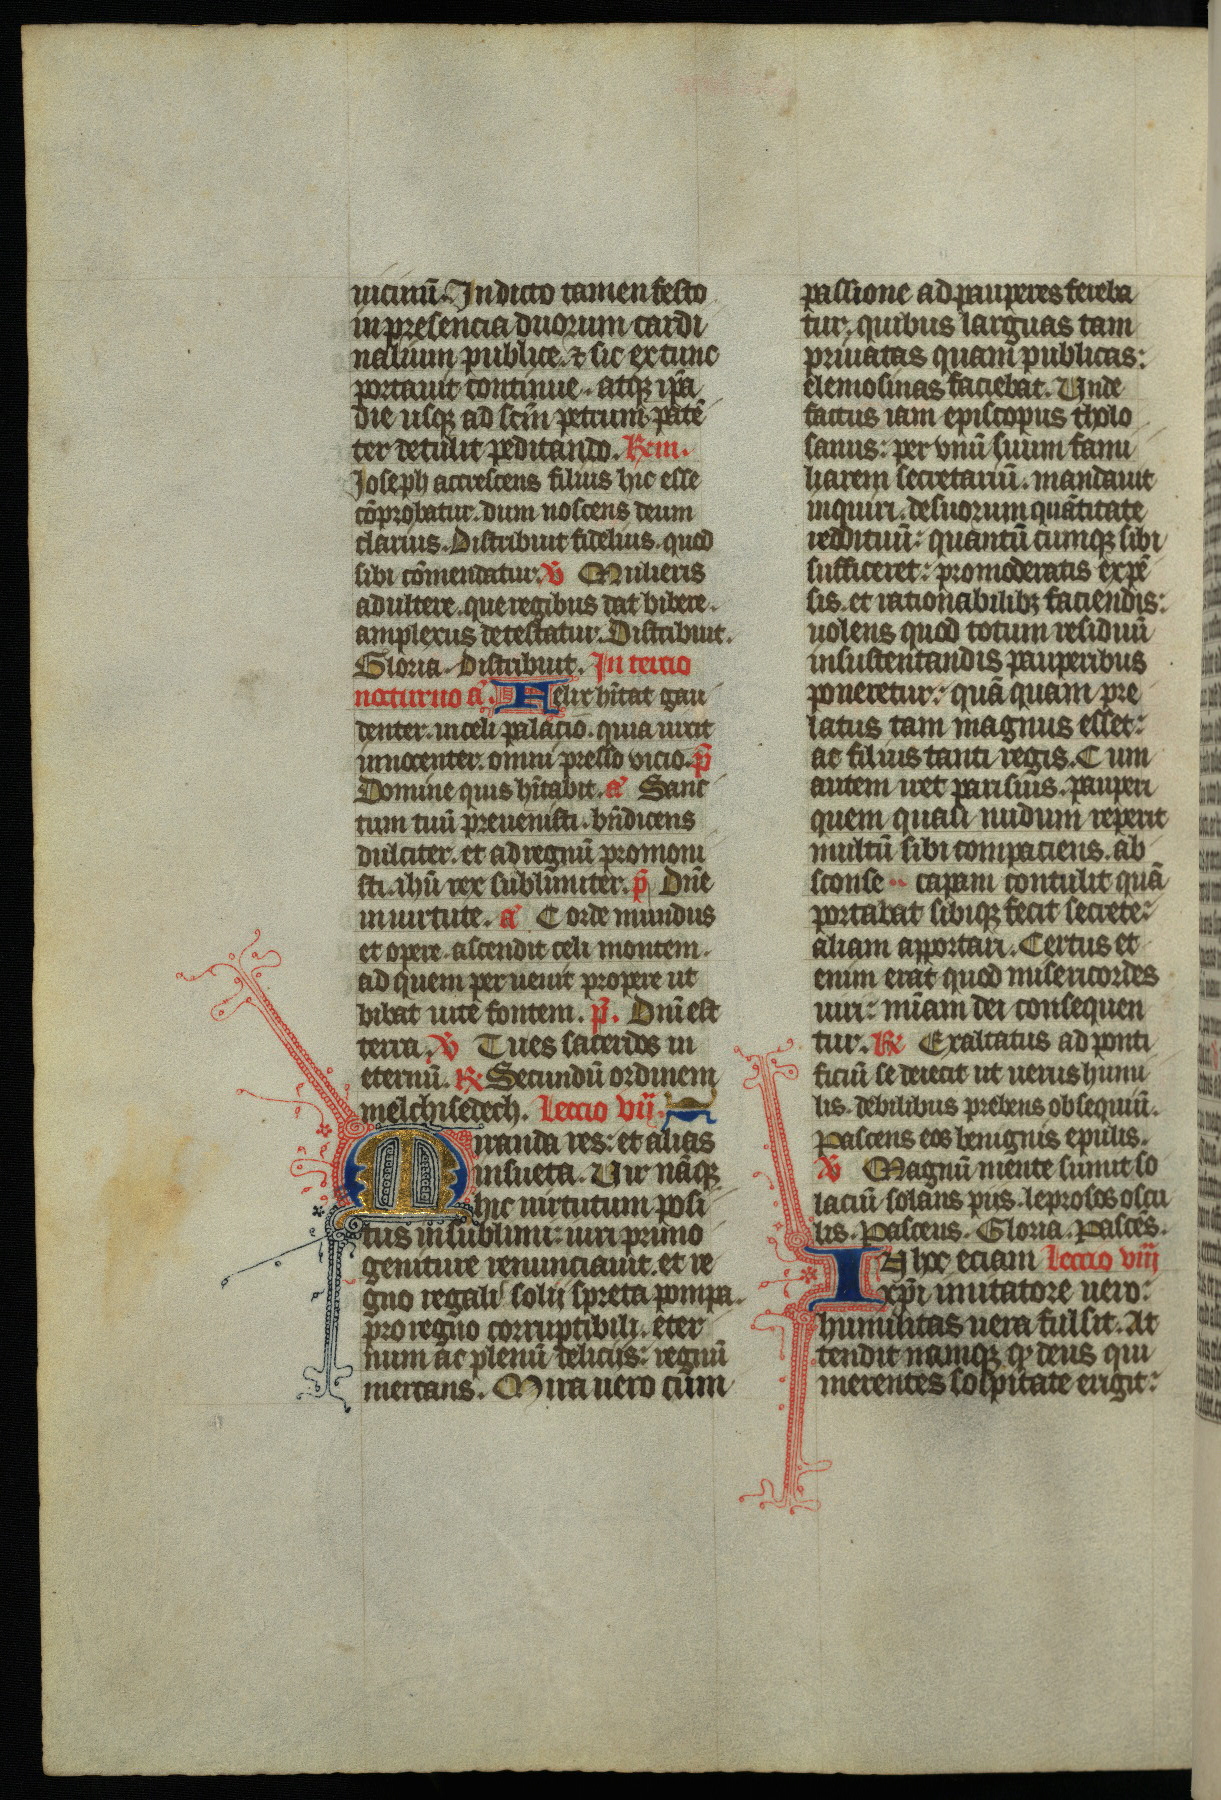 uicinū. In dicto tamen festo
in presencia duorum cardi
nalium publice. & sic ex tunc
portauit continue. atqꝫ ip̄a
die usqꝫ ad sc̄m petrum. patē
ter detulit peditando. R̄. iii.
Joseph accrescens filius hic esse
cōprobatur. dum noscens deum
clarius. Distribuit fidelius. quod
sibi cōmendatur. V̄ Mulieris
adultere. que regibus dat bibere.
amplexus detestatur. Distribuit.
Gloria. Distribuit. In tercio
nocturno a͞. Felix hītat gau
denter. in celi palacio. quia uixit
innocenter. omni presso vicio. p̄s
Domine quis hītabit. a͞ Sanc
tum tuū preuenisti. bn̄dicens
dulciter. et ad regnū promoui
sti. ihū rex sublimiter. p̄s Dn̄e
in uirtute. a͞ Corde mundus
et opere. ascendit celi montem.
ad quem peruenit propere ut
bibat uite fontem. p̄s. Dn̄i est
terra. V̄ Tu es sacerdos in
eternū. R̄ Secundū ordinem
melchisedech. Leccio vij.
Miranda res: et alias
insueta. Vir nāqꝫ
hic uirtutum posi
tus in sublimi: iuri primo
geniture renunciauit. et re
gno regali solij spreta pompa.
pro regno corruptibili. eter
num ac plenū delicijs: regnū
mercans. Mira uero cum
passione ad pauperes fereba
tur. quibus larguas tam
priuatas quam publicas:
elemosinas faciebat. Unde
factus iam episcopus tholo
sanus: per vnū suum famu
liarem secretariū. mandauit
inquiri. de suorum quātitate
reddituū: quantū cumqꝫ sibi
sufficeret: pro moderatis expē
sis. et rationabilibꝫ faciendis:
uolens quod totum residuū
in sustentandis pauperibus
poneretur: quā quam pre
latus tam magnus esset:
ac filius tanti regis. Cum
autem iret parisius. pauperi
quem quasi nudum reperit
multū sibi compaciens. ab
sconse capam contulit quā
portabat sibiqꝫ fecit secrete:
aliam apportari. Certus et
enim erat quod misericordes
uiri: mīam dei consequen
tur. R̄ Exaltatus ad ponti
ficiū se deiecit ut uerus humi
lis. debilibus prebens obsequiū.
Pascens eos benignis epulis.
V̄ Magnū mente sumit so
laciū solans pius. leprosos oscu
lis. Pascens. Gloria. Pascēs.
In hoc eciam Leccio viij
xp̄i imitatore uero:
humilitas uera fulsit. At
tendit namqꝫ qꝫ deus qui
merentes sospitate erigit: